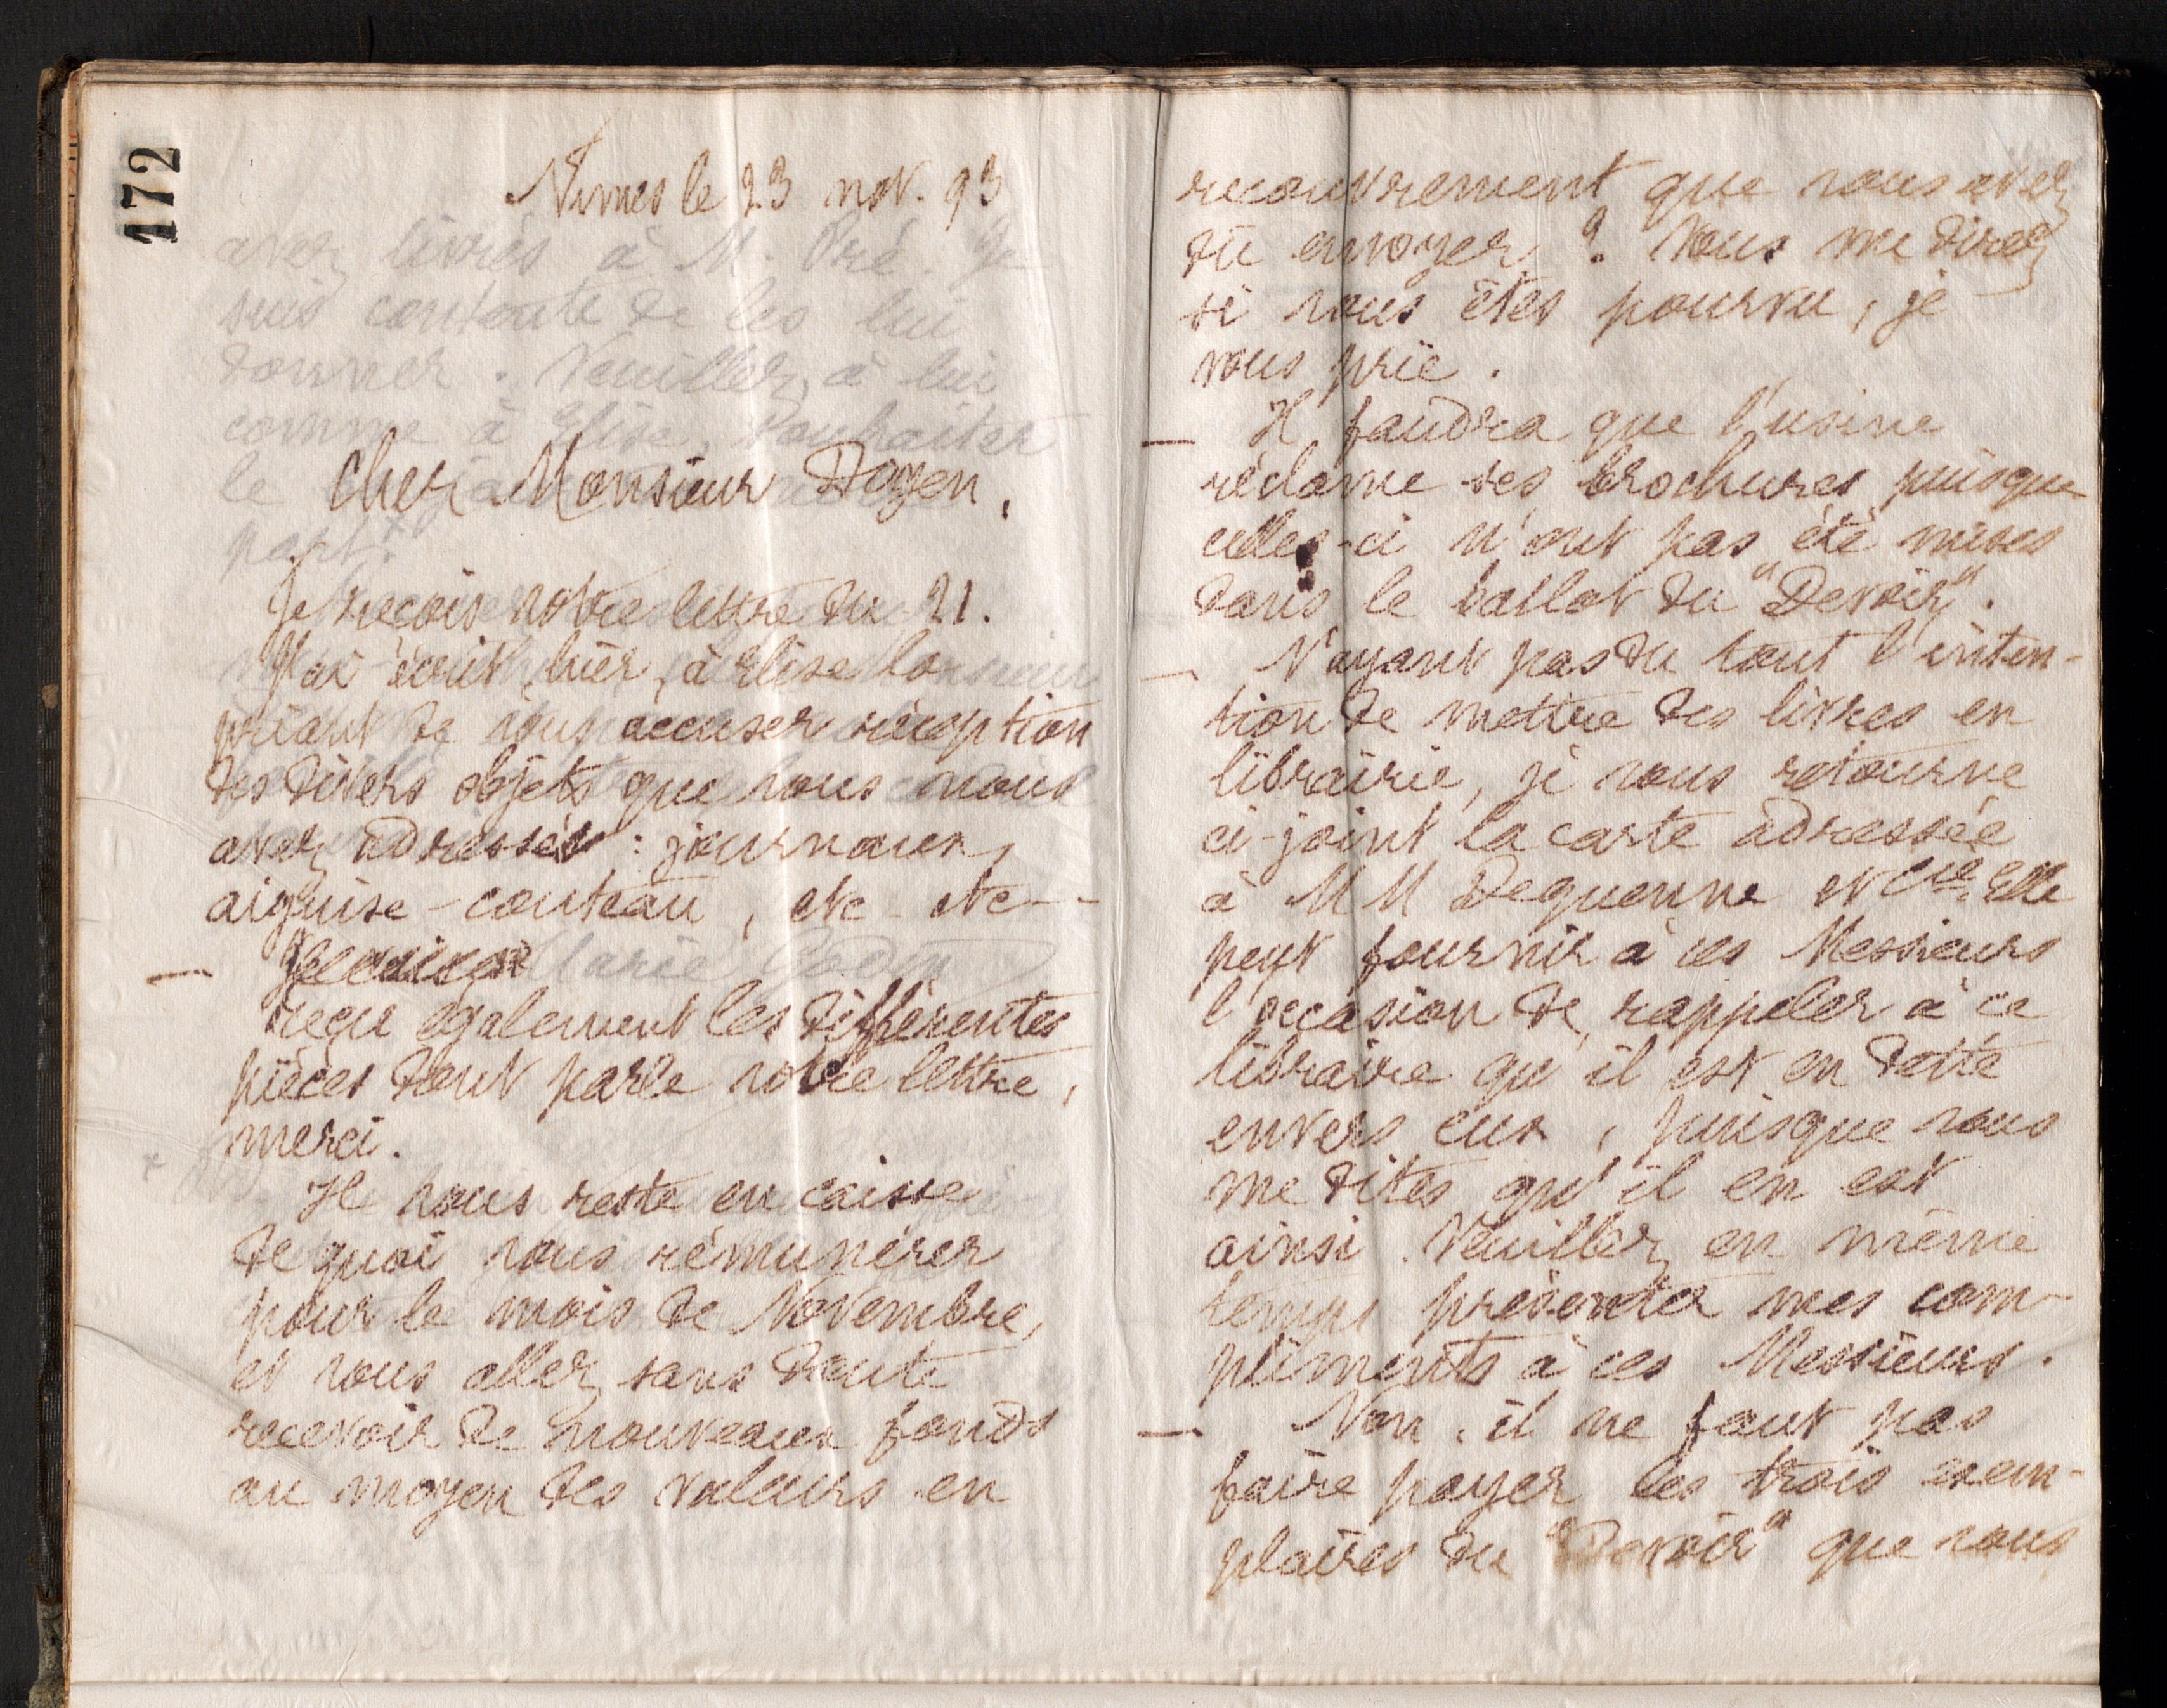 172
Nimes le 23 nov. 93
Cher Monsieur Doyen,
Je reçois votre lettre du 21.
J'ai écrit, hier, à Elise la
priant de vous accuser réception
des divers objets que vous nous
avez adressés : journaux,
aiguise-couteau, etc etc--
reçu également les différentes
pièces dont parle votre lettre,
merci.
Il vous reste en caisse
de quoi vous rémunérer
pour le mois de Novembre,
et vous allez sans doute
recevoir de nouveaux fonds
au moyen des valeurs en
recouvrement que vous avez
dû envoyer ? Vous me direz
si vous êtes pourvu, je
vous prie.
— Il faudra que l'usine
réclame ses brochures puisque
celles-ci n'ont pas été mises
dans le ballot du "Devoir".
— N'ayant pas du tout l'inten-
tion de mettre des livres en
librairie, je vous retourne
ci-joint la carte adressée
à MM Dequenne et Cie. Elle
peut fournir à ces Messieurs
l'occasion de rappeler à ce
libraire qu'il est en dette
envers eux, puisque vous
me dites qu'il en est
ainsi. Veuillez en même
temps présenter mes com-
pliments à ces Messieurs.
— Non, il ne faut pas
faire payer les trois exem-
plaires du "Devoir" que vous
avez livrés à M. Pré. Je
suis contente de les lui
donner. Veuillez, à lui
comme à Elise, souhaiter
le
part.
Marie Godin